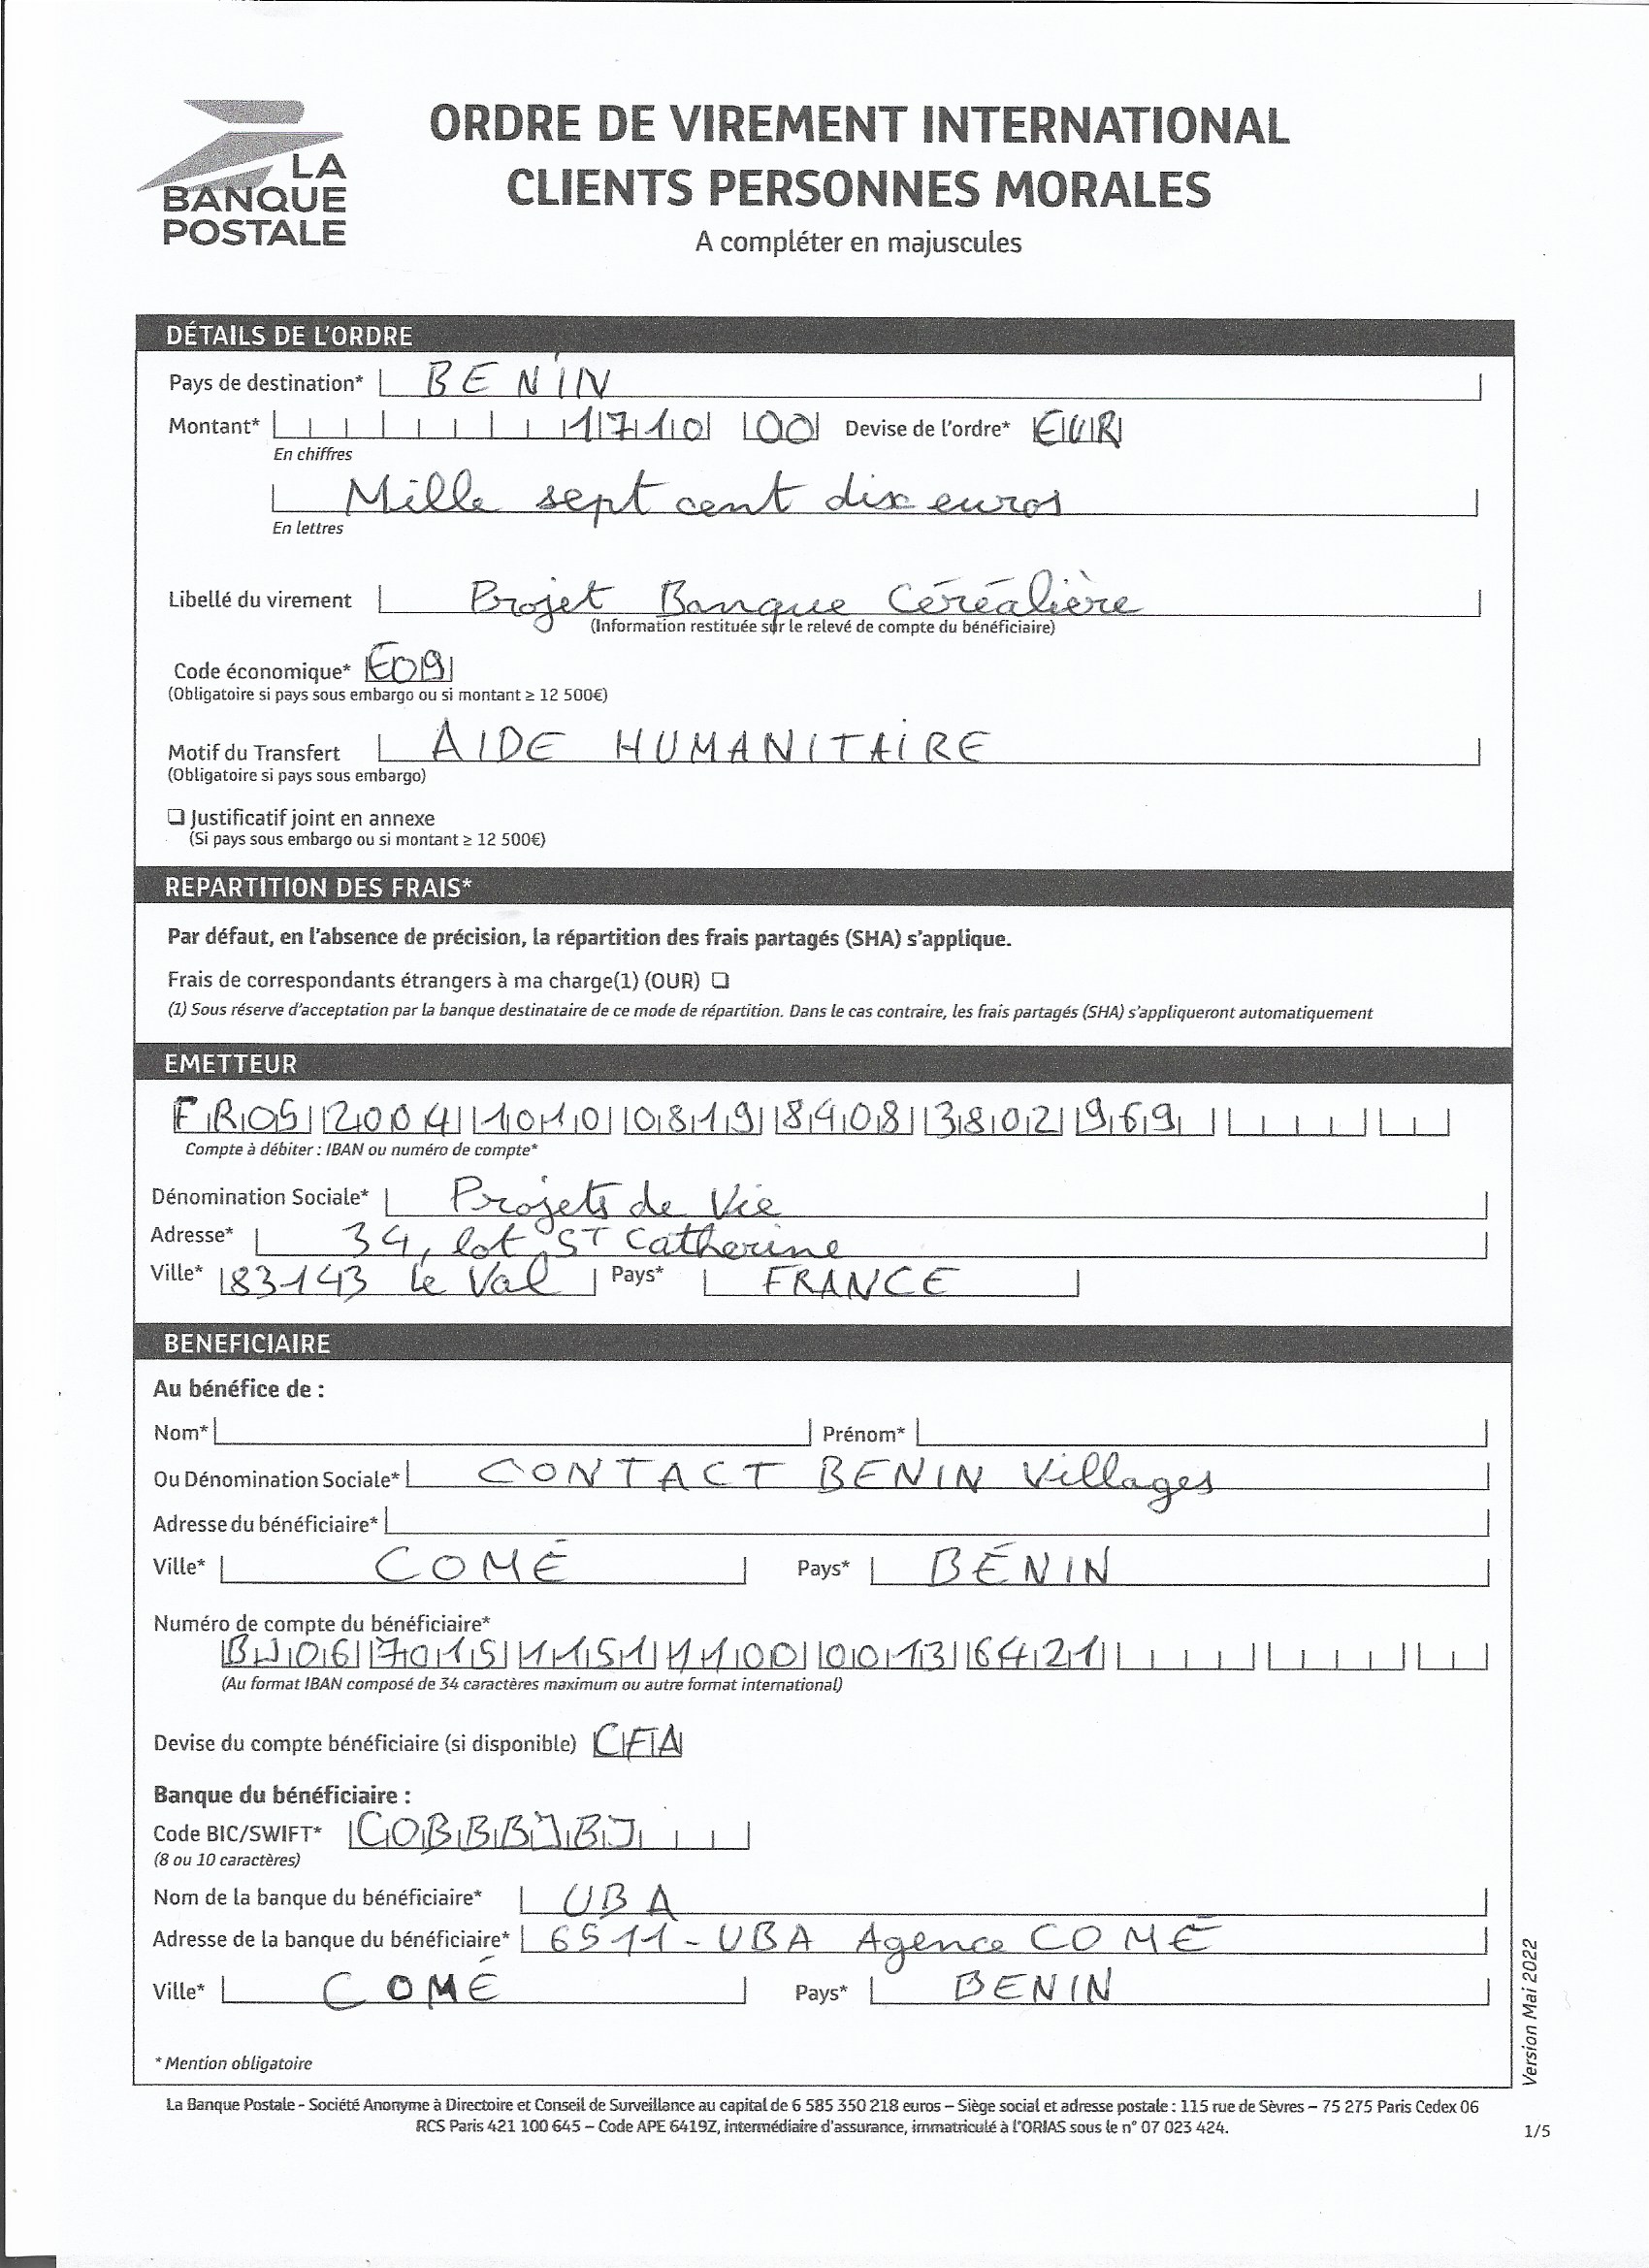 LA
BANQUE
POSTALE
ORDRE DE VIREMENT INTERNATIONAL
CLIENTS PERSONNES MORALES
A compléter en majuscules
DÉTAILS DE L'ORDRE
Pays de destination* BENIN
Montant* 1710 00 Devise de l'ordre* EUR
En chiffres
Mille sept cent dix euros
En lettres
Libellé du virement Projet Banque Céréalière
(Information restituée sur le relevé de compte du bénéficiaire)
Code économique* E09
(Obligatoire si pays sous embargo ou si montant ≥ 12 500€)
Motif du Transfert AIDE HUMANITAIRE
(Obligatoire si pays sous embargo)
❏ Justificatif joint en annexe
(Si pays sous embargo ou si montant ≥ 12 500€)
REPARTITION DES FRAIS*
Par défaut, en l'absence de précision, la répartition des frais partagés (SHA) s'applique.
Frais de correspondants étrangers à ma charge(1) (OUR) ❏
(1) Sous réserve d'acceptation par la banque destinataire de ce mode de répartition. Dans le cas contraire, les frais partagés (SHA) s'appliqueront automatiquement
EMETTEUR
FR05 2004 1010 0819 8908 3802 969
Compte à débiter : IBAN ou numéro de compte*
Dénomination Sociale* Projets de Vie
Adresse* 34, lot ST Catherine
Ville* 83143 le Val Pays* FRANCE
BENEFICIAIRE
Au bénéfice de :
Nom* Prénom*
Ou Dénomination Sociale* CONTACT BENIN Villages
Adresse du bénéficiaire*
Ville* COMÉ Pays* BÉNIN
Numéro de compte du bénéficiaire*
BJ06 7015 1151 1100 0013 6421
(Au format IBAN composé de 34 caractères maximum ou autre format international)
Devise du compte bénéficiaire (si disponible) CFA
Banque du bénéficiaire :
Code BIC/SWIFT* COBBBJBJ
(8 ou 10 caractères)
Nom de la banque du bénéficiaire* UBA
Adresse de la banque du bénéficiaire* 6511 - UBA Agence COMÉ
Ville* COMÉ Pays* BENIN
* Mention obligatoire
Version Mai 2022
La Banque Postale - Société Anonyme à Directoire et Conseil de Surveillance au capital de 6 585 350 218 euros – Siège social et adresse postale : 115 rue de Sèvres – 75 275 Paris Cedex 06
RCS Paris 421 100 645 – Code APE 6419Z, intermédiaire d'assurance, immatriculé à l'ORIAS sous le n° 07 023 424.
1/5